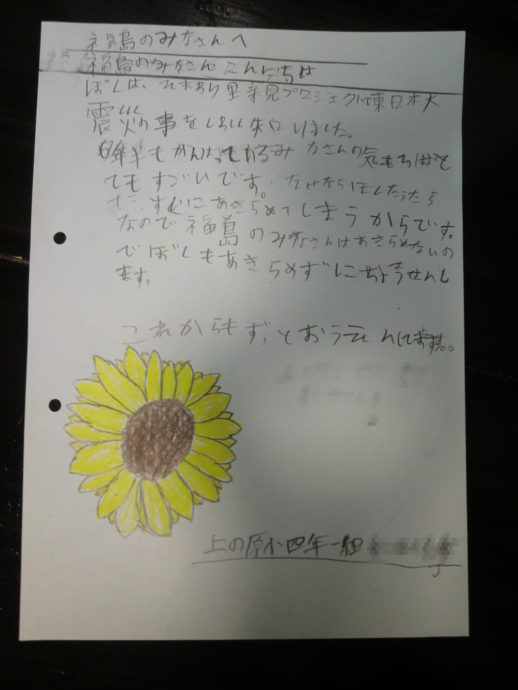 福島のみなさんへ
福島のみなさんこんにちは
ぼくは、ひまわり里親プロジェクトは東日本大
震災の事をくわしく知りました。
6年半もがんばってるみなさんの気もちはと
てもすごいです。なぜならぼくだったら
すぐにあきらめてしまうからです。
なので福島のみなさんはあきらめないの
でぼくもあきらめずにちょうせんし
ます。
これからもずっとおうえんします。
上の原小四年一組